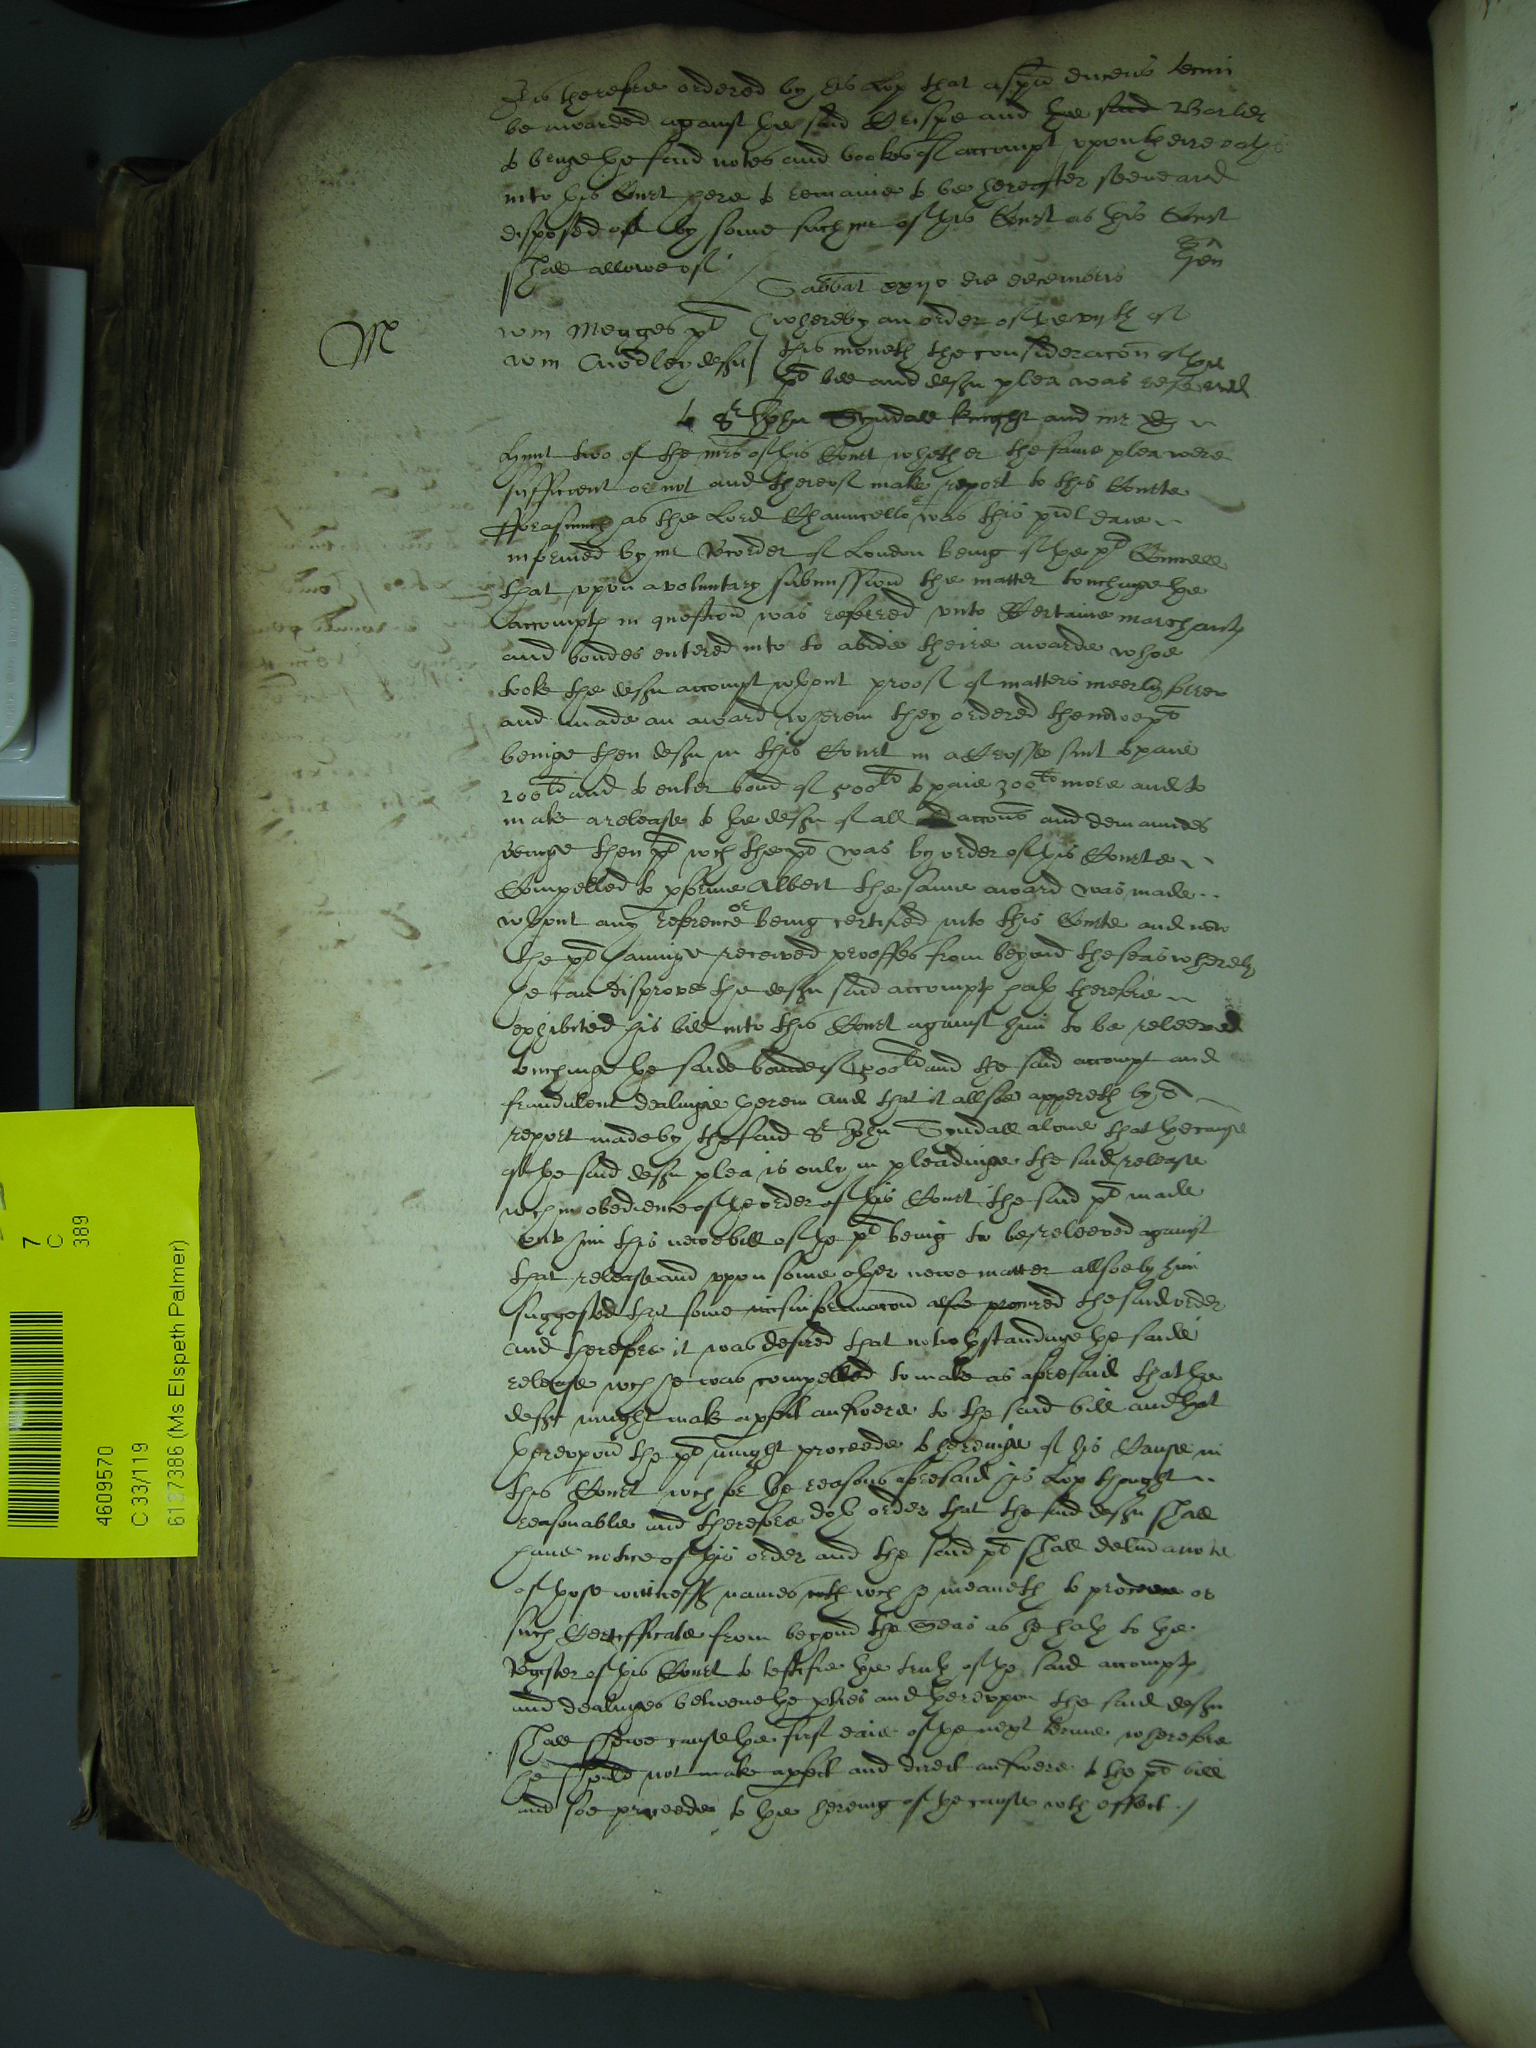 It is therefore ordered by his Lop that a spa ducens tecum
be awarded against the said Crispe and the said Barber
to bringe the said notes and bookes of accompt upon theire oathes
into this Court there to remaine to be hereafter seene and
disposed of by some such mr of this Court as this Court
shall allowe of /
Sabbat xxijo die decembris
M
Wm Megges plt
Wm Audley deft
whereby an order of the vijth of
this moneth the consideracon of the
plt bill and deft plea was referred
to Sr John Tyndall knight and mr Dcr
Hunt two of the mrs of this Court whether the same plea were
sufficient or not and thereof make report to this Courte
fforasmuch as the Lord Chauncellor was this pnt daie
informed by mr Recorder of London being of the plt Councell
that upon a voluntary submission the matter touchinge the
accompts in question was referred unto Certaine marchants
and bondes entered into to abide theire awarde whoe
tooke the deft accompt wthout proof of matters meerly
and made an award wherein they ordered the nowe plt
beinge then deft in this Court in a Crosse suit to paie
200ld and to enter bond of 500ld to paie 300ld more and to
make a release to the deft of all accons and demaundes
beinge then plt wch the plt was by order of this Courte
Compelled to pforme Albeit the same award was made
wthout any reference or being certified into this Courte and now
the plt havinge received prooffes from beyond the seas whereby
he can disprove the deft said accompts hath therefore
exhibited his bill into this Court against him to be releeved
touchinge the saide bond of 500ld and the said accompt and
fraudulent dealinge therein And that it allsoe appereth by a
report made by the said Sr John Tyndall alone that the cause
of the said deft plea is only in pleadinge the said release
wch in obedience of the order of this Court the said plt made
unto him this newe bill of the plt being to be releeved against
that release and upon some other newe matter allsoe by him
suggested that some misinformacon alsoe procured the said order
and therefore it was desired that notwthstandinge the saide
release wch he was compelled to make as aforesaid that the
deft might make a pfect answere to the said bill and that
thereupon the plt might proceede to hereinge of his Cause in
this Court wch for the reasons aforesaid his Lop thought
reasonable and therefore doth order that the said deft shall
have notice of this order and the said plt shall deliver a note
of those wittnesses names wch he meaneth to produce or
such Certifficate from beyond the Seas as he hath to the
Register of this Court to testifie the truth of the said accompts
and dealinges betweene the pties and thereupon the said deft
shall shewe cause the first daie of the next terme wherefore
he should not make a pfect and direct answere to the plt bill
and soe proceede to the hereing of the cause wth effect /
7
C
389
4609570
C 33/119
6137386 (Ms Elspeth Palmer)